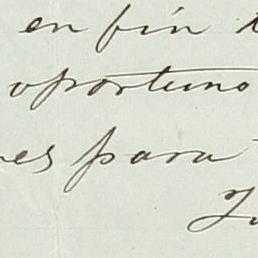 en fin
oportuno
es para